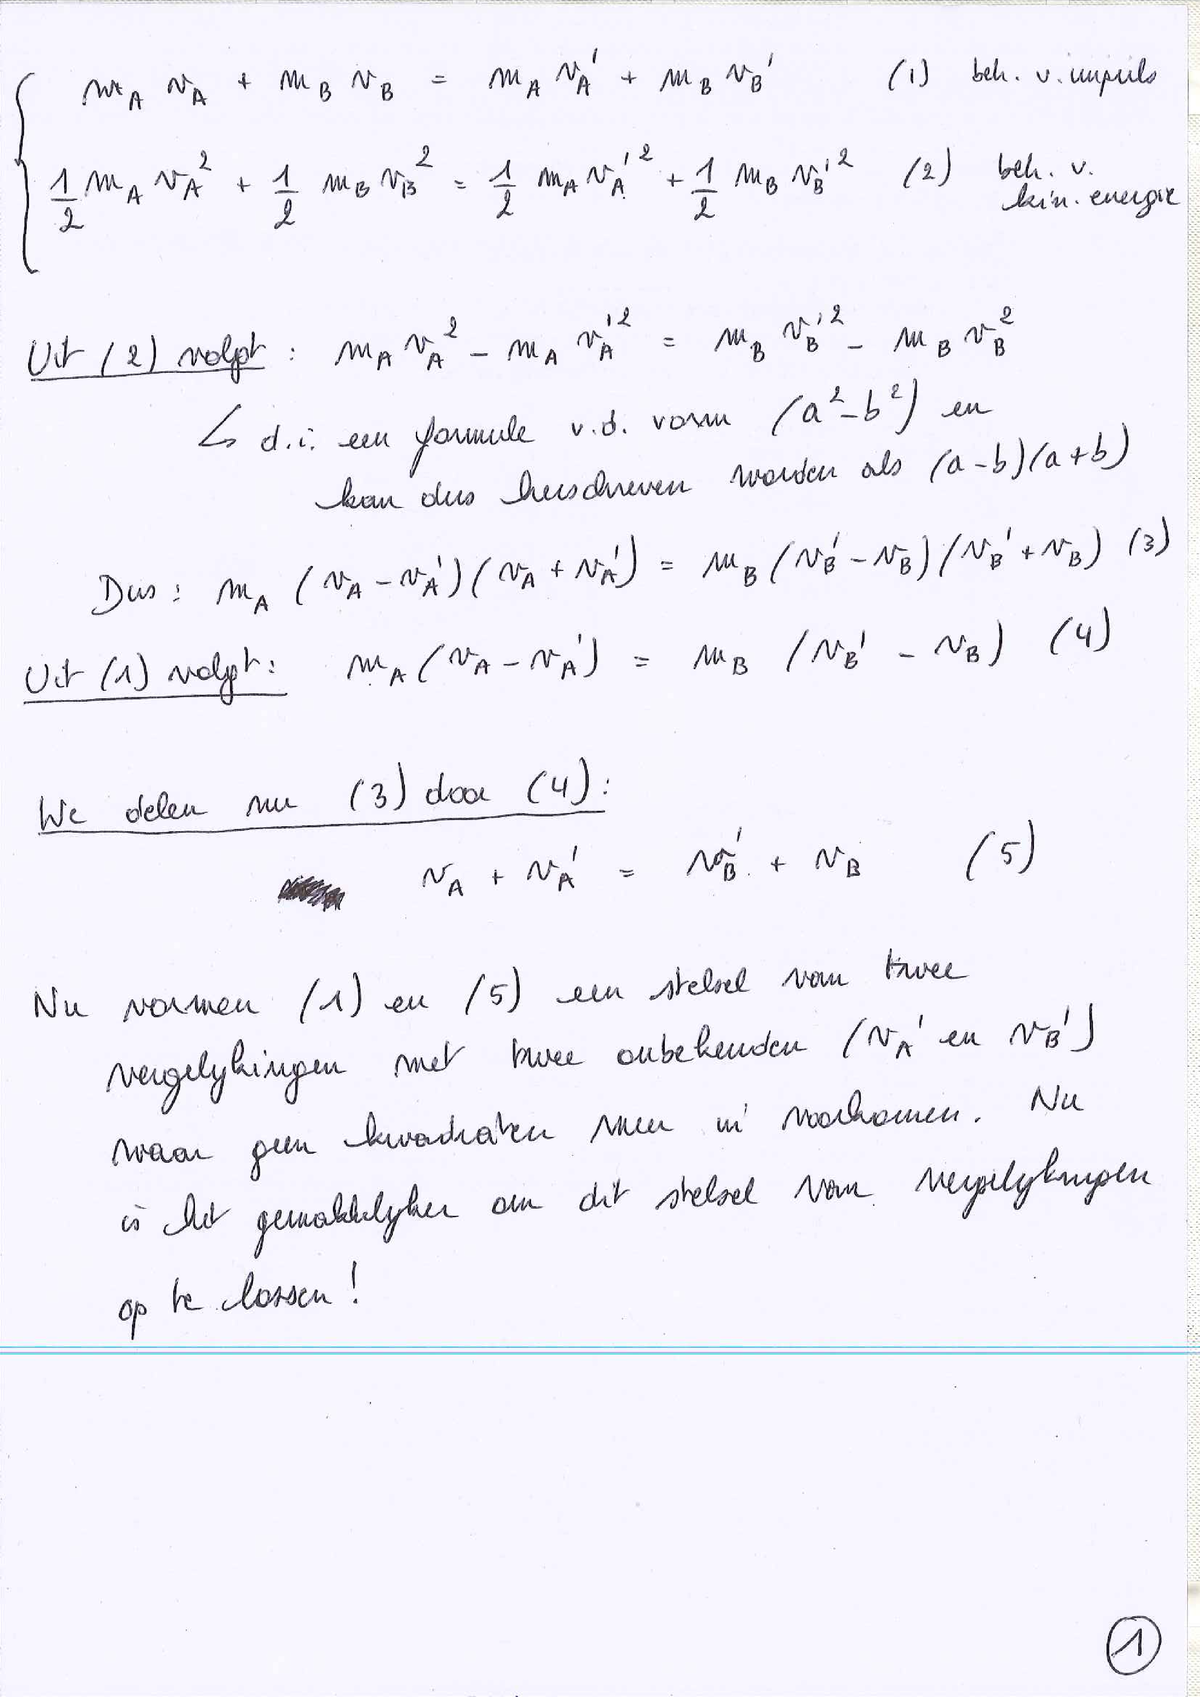 m_A v_A + m_B v_B = m_A v_A' + m_B v_B' (1) beh. v. impuls
1/2 m_A v_A² + 1/2 m_B v_B² = 1/2 m_A v_A'² + 1/2 m_B v_B'² (2) beh. v.
kin. energie
Uit (2) volgt: m_A v_A² - m_A v_A'² = m_B v_B'² - m_B v_B²
↳ d.i. een formule v.d. vorm (a² - b²) en
kan dus herschreven worden als (a - b)(a + b)
Dus: m_A (v_A - v_A')(v_A + v_A') = m_B (v_B' - v_B)(v_B' + v_B) (3)
Uit (1) volgt: m_A (v_A - v_A') = m_B (v_B' - v_B) (4)
We delen nu (3) door (4):
v_A + v_A' = v_B' + v_B (5)
Nu vormen (1) en (5) een stelsel van twee
vergelykingen met twee onbekenden (v_A' en v_B')
waar geen kwadraten meer in voorkomen. Nu
is het gemakkelyker om dit stelsel van vergelykingen
op te lossen!
1